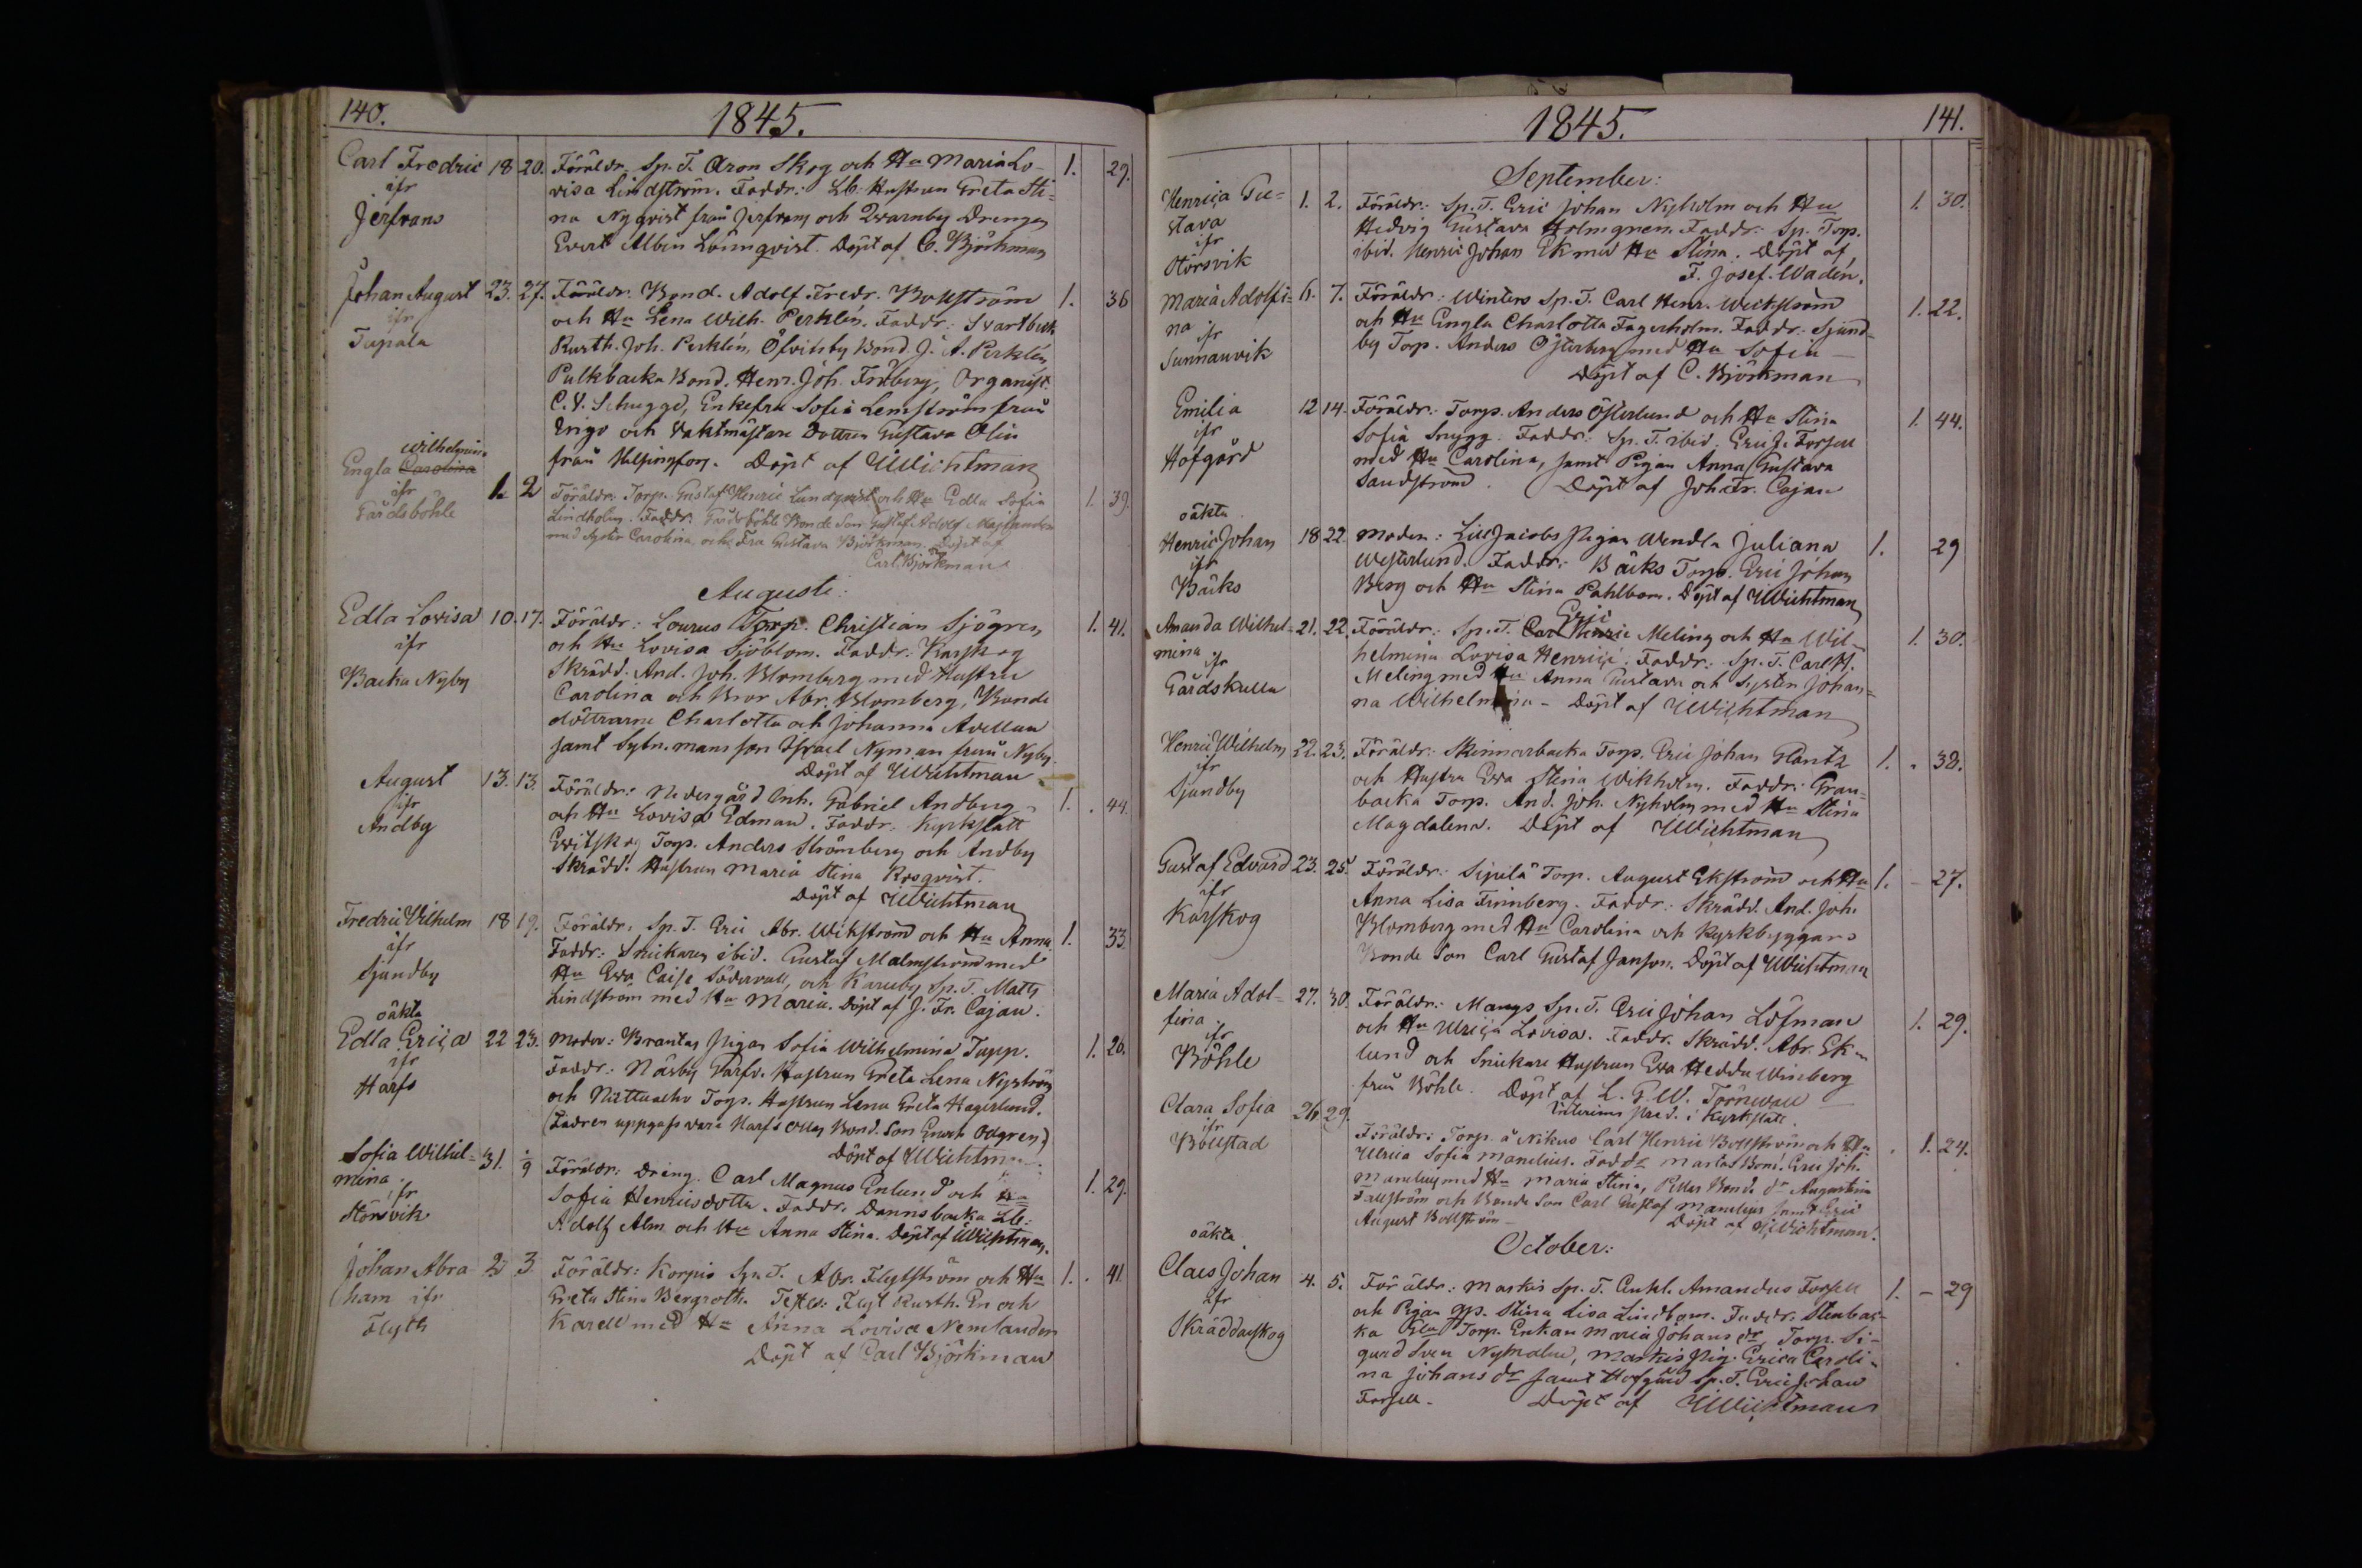 140.
1845.
Carl Fredric 18 20. Föräldr. Sp. T. Aron Skog och Hu Maria Lo- 1. 29.
ifr
visa Lindström. Faddr.: Lb. Hustrun Greta Sti-
Jerfrans
na Nyqvist från Jerfrans och Qvarnby Drengen
Evert Albin Lönnqvist. Döpt af C. Björkman
Johan August 23. 27. Föräldr. Bond. Adolf Fredr. Bollström 1. 36
ifr
och Hu Lena Wilh. Perklén. Faddr: Svartbäck
Tupala
Rusth. Joh. Perklén, Öfvitsby Bond. J. A. Perklén,
Pulkbacka Bond. Henr. Joh. Fröberg, Organist.
C. V. Schugge, Enkefru Sofia Lemström från
Ingo och Vaktmästare Dottren Gustava Olin
från Helsingfors. Döpt af UWichtman
Wilhelmin.
Engla Carolina
ifr
Gårdsböhle
1. 2 Föräldr. Torp. Gustaf Henric Lundqvist och Hu Edla Sofia 1. 39.
Lindholm. Faddr: Gårdsböhle Bonde Son Gustaf Adolf
med Syster Carolina, och Fru Gustava Björkman. Döpt af
Carl Björkman
Augusti:
Edla Lovisa 10. 17. Föräldr: Lourus Torp. Christian Sjögren 1. 41.
ifr
och Hu Lovisa Sjöblom. Faddr: Karskog
Backa Nyby
Skrädd. And. Joh. Blomberg med Hustru
Carolina och Bror Abr. Blomberg, Bonde
döttrarne Charlotta och Johanna Avellan
samt Sytn. mans son Israel Nyman från Nyby.
Döpt af UWichtman
August 13. 13. Föräldr: Nedergård Inh. Gabriel Andberg 1. . 44.
ifr
och Hu Lovisa Edman. Faddr. Kyrkslätt
Andby
Evitskog Torp. Anders Strömberg och Andby
Skrädd. Hustrun Maria Stina Rosqvist.
Döpt af UWichtman
Fredric Wilhelm 18 19. Föräldr. Sp. T. Eric Abr. Wikström och Hu Anna 1. 33.
ifr
Faddr: Snickaren ibid. Gustaf Malmström med
Sjundby
Hu Eva Caisa Södervall, och Karuby Sp. T. Matts
Lindström med Hu Maria. Döpt af J. Fr. Cajan.
oäkta
Edla Eriça 22 23. Moder: Brantas Pigan Sofia Wilhelmina Tupp. 1. 26.
ifr
Faddr: Näsby Parfv. Hustrun Greta Lena Nyström
Harfs
och Nettuacho Torp. Hustrun Lena Greta Hagerlund.
(Fadren uppgafs vara Harfs Ollas Bond. Son Enoch Odgren)
Döpt af UWichtman
Sofia Wilhel- 31. 9 Föräldr: Dräng. Carl Magnus Enlund och Hu 1. 29.
mina
ifr
Sofia Henricsdotter. Faddr. Dannsbacka Lb:
Störsvik
Adolf Alm och Hu Anna Stina. Döpt af UWichtman.
Johan Abra- 2 3. Föräldr: Korpis Sp. T. Abr. Flytström och Hu 1. . 41
ham ifr
Greta Stina Bergroth. Testes: Flyt Rusth. Enoch
Flyth
Karell med Hu Anna Lovisa Nemlander
Döpt af Carl Björkman
1845.
141.
September:
Henriça Gu- 1. 2. Föräldr: Sp. T. Eric Johan Nyholm och Hu 1. 30.
stava
Hedvig Gustava Holmgren. Faddr: Sp. Torp.
ifr
ibid. Henric Johan Ek med Hu Stina. Döpt af
Störsvik
F. Josef. Wadén.
Maria Adolfi- 6. 7. Föräldr: Winters Sp. T. Carl Henr. Weckström 1. 22.
na ifr
och Hu Engla Charlotta Fagerholm. Faddr: Sjund-
Sunnanvik
by Torp. Anders Österberg med Hu Sofia
Döpt af C. Björkman
Emilia 12 14. Föräldr: Torp. Anders Österlund och Hu Stina 1. 44.
ifr
Sofia Snygg. Faddr: Sp. T. ibid. Eric J. Forsell
Hofgård
med Hu Carolina, samt Pigan Anna Gustava
Sandström. Döpt af Joh. Fr. Cajan
oäkta
Henric Johan 18 22. Moder: Lill Jacobs Pigan Wendla Juliana 1. 29
ifr
Westerlund. Faddr: Bäcks Torp. Eric Johan
Bäcks
Berg och Hu Stina Pahlbom. Döpt af UWichtman
Eric
Amanda Wilhel- 21. 22. Föräldr: Sp. T. Carl Henric Meling och Hu Wil- 1. 30.
mina
ifr
helmina Lovisa Henriçi. Faddr: Sp. T. Carl H.
Gårdskulla
Meling med Hu Anna Gustava och Systen Johan-
na Wilhelmina - Döpt af UWichtman
Henric Wilhelm 22. 23. Föräldr: Skinnarbacka Torp. Eric Johan Glantz 1. . 38.
ifr
och Hustru Eva Stina Wikholm. Faddr: Gran-
Sjundby
backa Torp. And. Joh. Nyholm med Hu Stina
Magdalena. Döpt af UWichtman
Gustaf Edvard 23. 25. Föräldr: Sipilä Torp. August Ekström och Hu 1. - 27.
ifr
Anna Lisa Finnberg. Faddr: Skrädd. And. Joh.
Karskog
Blomberg med Hu Carolina och Kyrkbyggars
Bonde Son Carl Gustaf Janson. Döpt af UWichtman
Maria Adol- 27. 30. Föräldr: Mangs Sp. T. Eric Johan Löfman 1. 29.
fina
ifr
och Hu Ulriça Lovisa. Faddr. Skrädd. Abr. Ek-
Böhle
lund och Snickare Hustrun Eva Hedda Wineberg
från Böhle. Döpt af L. G. W. Törnwall
Interims Pred. i Kyrkslätt.
Clara Sofia 26 29.
ifr
Föräldr: Torp. å Nikus Carl Henric Bollström och Hu . 1. 24.
Bollstad
Ulrica Sofia Manelius. Faddr Martas Bond. Eric Joh.
Manelius med Hu Maria Stina, Bond. dr Augustina
Fallström och Bonde Son Carl Gustaf Manelius samt Eric
August Bollström - Döpt af UWichtman.
October:
oäkta
Claes Johan 4. 5. Föräldr: Maskis Sp. T. Enkl. Amandus Forsell 1. - 29
ifr
och Pigan Stina Lisa Lindbom. Faddr. Stenbac-
Skräddarskog
ka Torp. Enkan Maria Johans dr, Torp. Si-
gurd Sven Nymalm, Maskis Pig. Erica Caroli-
na Johans dr samt Hofgård Sp. T. Eric Johan
Forsell. Döpt af UWichtman